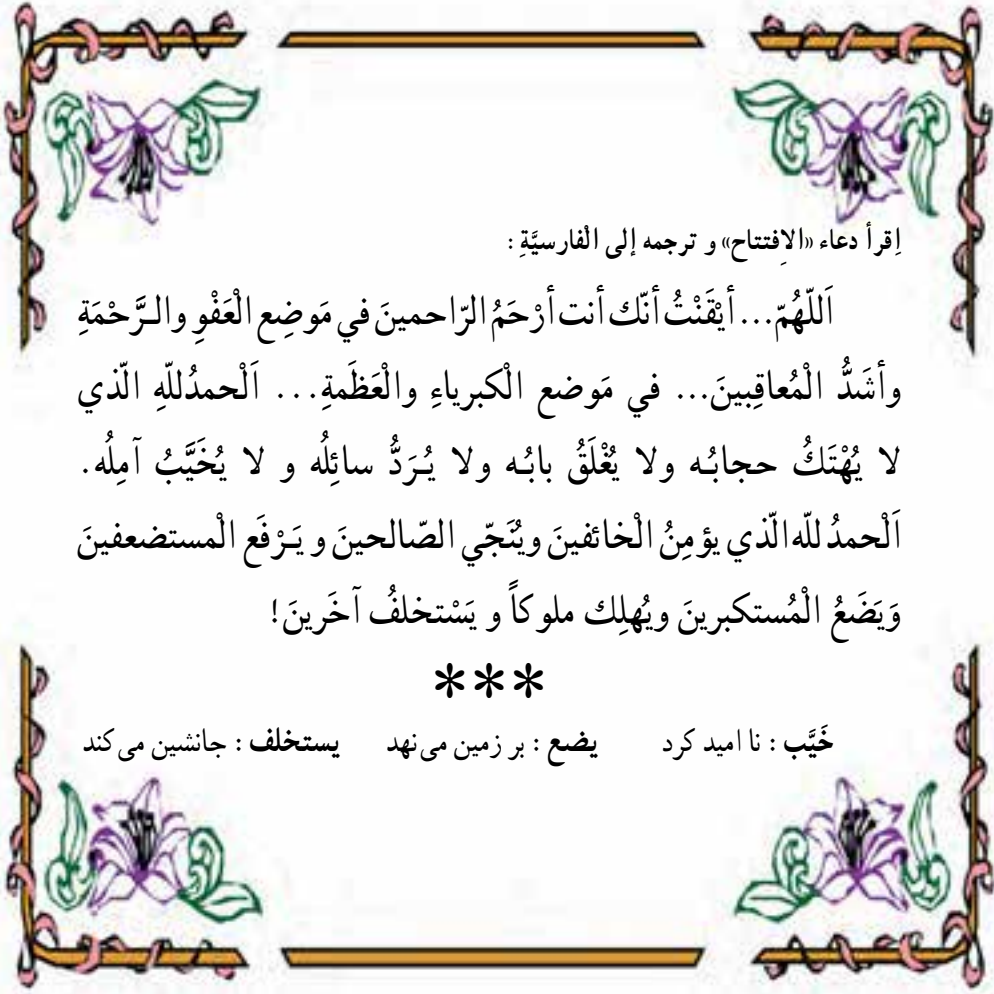 اِقرأ دعاء «الافتتاح» و ترجمه إلى الْفارسيَّةِ :
اَللّهُمّ... أيْقَنْتُ أنّك أنت أرْحَمُ الرّاحمينَ في مَوضِع الْعَفْوِ والـرَّحْمَةِ
وأشَدُّ الْمُعاقِبينَ... في مَوضع الْكبرياءِ والْعَظَمةِ... اَلْحمدُللّهِ الّذي
لا يُهْتَكُ حجابُـه ولا يُغْلَقُ بابُـه ولا يُـرَدُّ سائِلُه و لا يُخَيَّبُ آمِلُه.
اَلْحمدُ للّه الّذي يؤمِنُ الْخائفينَ ويُنَجّي الصّالحينَ و يَـرْفَع الْمستضعفينَ
وَيَضَعُ الْمُستكبرينَ ويُهلِك ملوكاً و يَسْتخلفُ آخَرينَ!
***
خَيَّب : نا اميد كرد يضع : بر زمين مى‌نهد يستخلف : جانشين مى‌كند